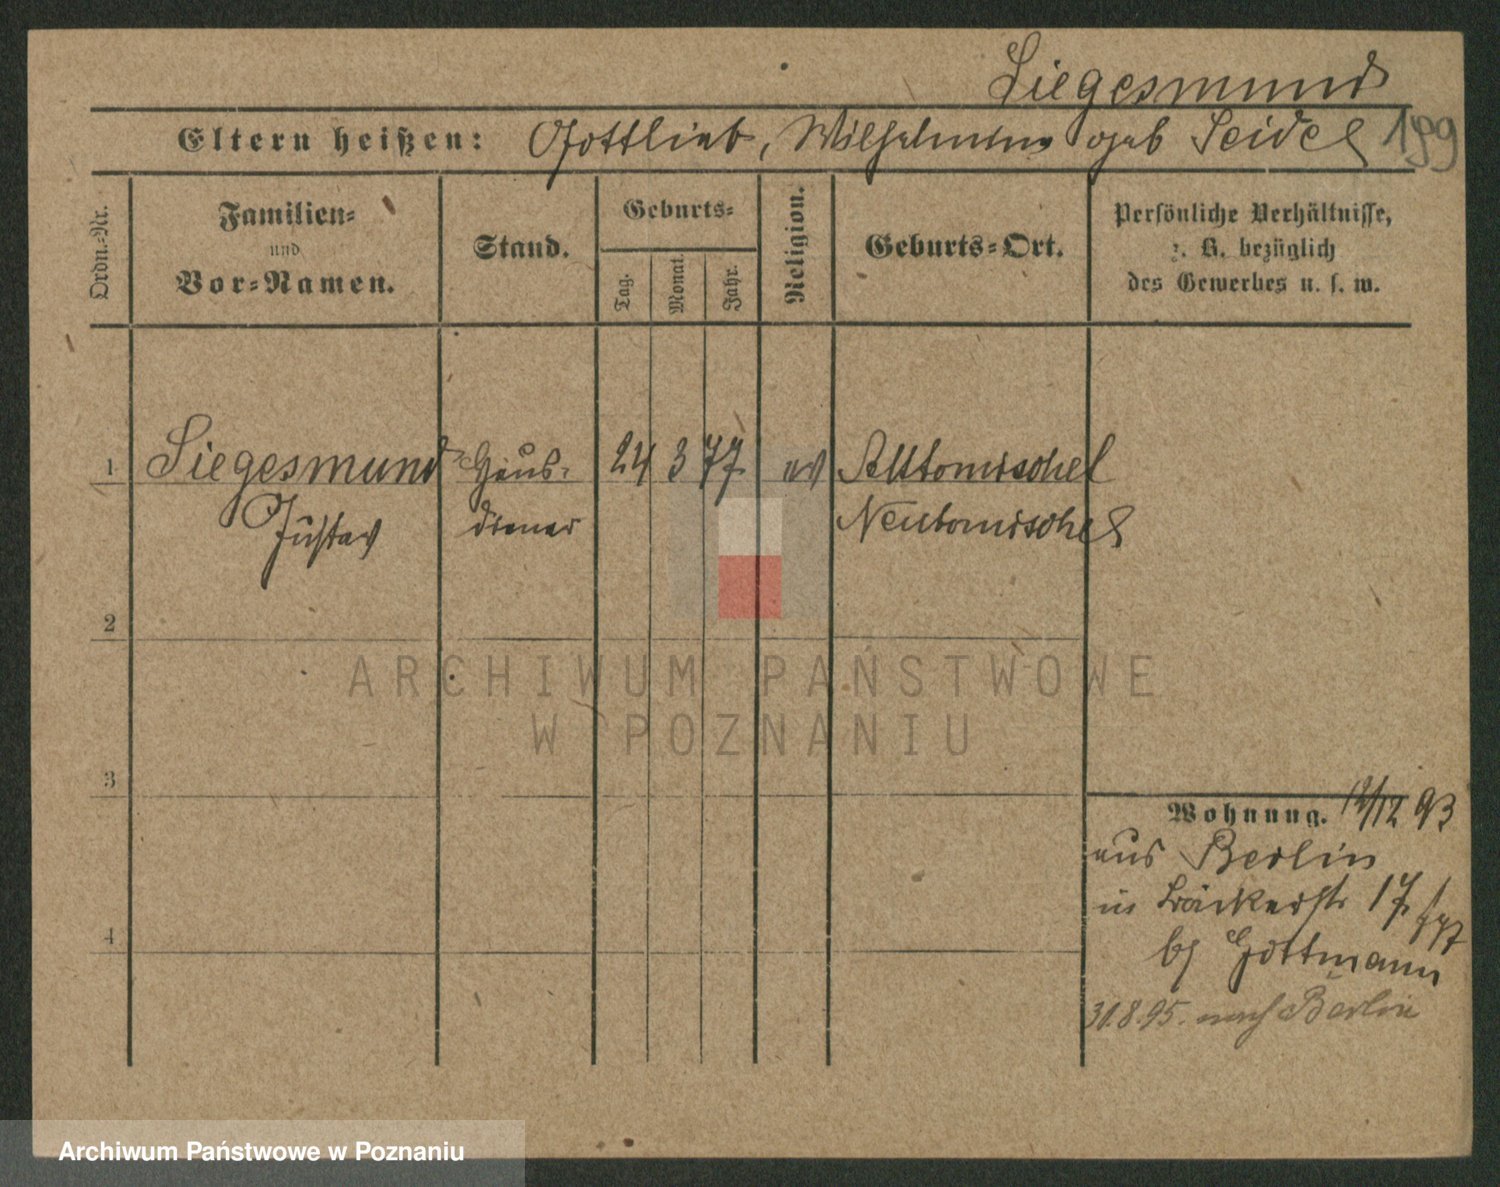 Siegesmund
Eltern heißen: Gottlieb, Wilhelmine geb Seidel 199
Ordn.-Nr.
Familien-
und
Vor-Namen.
Stand.
Geburts-
Tag.
Monat.
Jahr.
Religion.
Geburts-Ort.
Persönliche Verhältnisse,
z. B. bezüglich
des Gewerbes u. s. w.
1 Siegesmund Haus- 24 3 77 ev Alttomischel
Gustav diener Neutomischel
2
3
4
Wohnung. 12/12 93
aus Berlin
in Bäckerstr 17
bei Guttmann
31.8.95. nach Berlin
ARCHIWUM PAŃSTWOWE
W POZNANIU
Archiwum Państwowe w Poznaniu